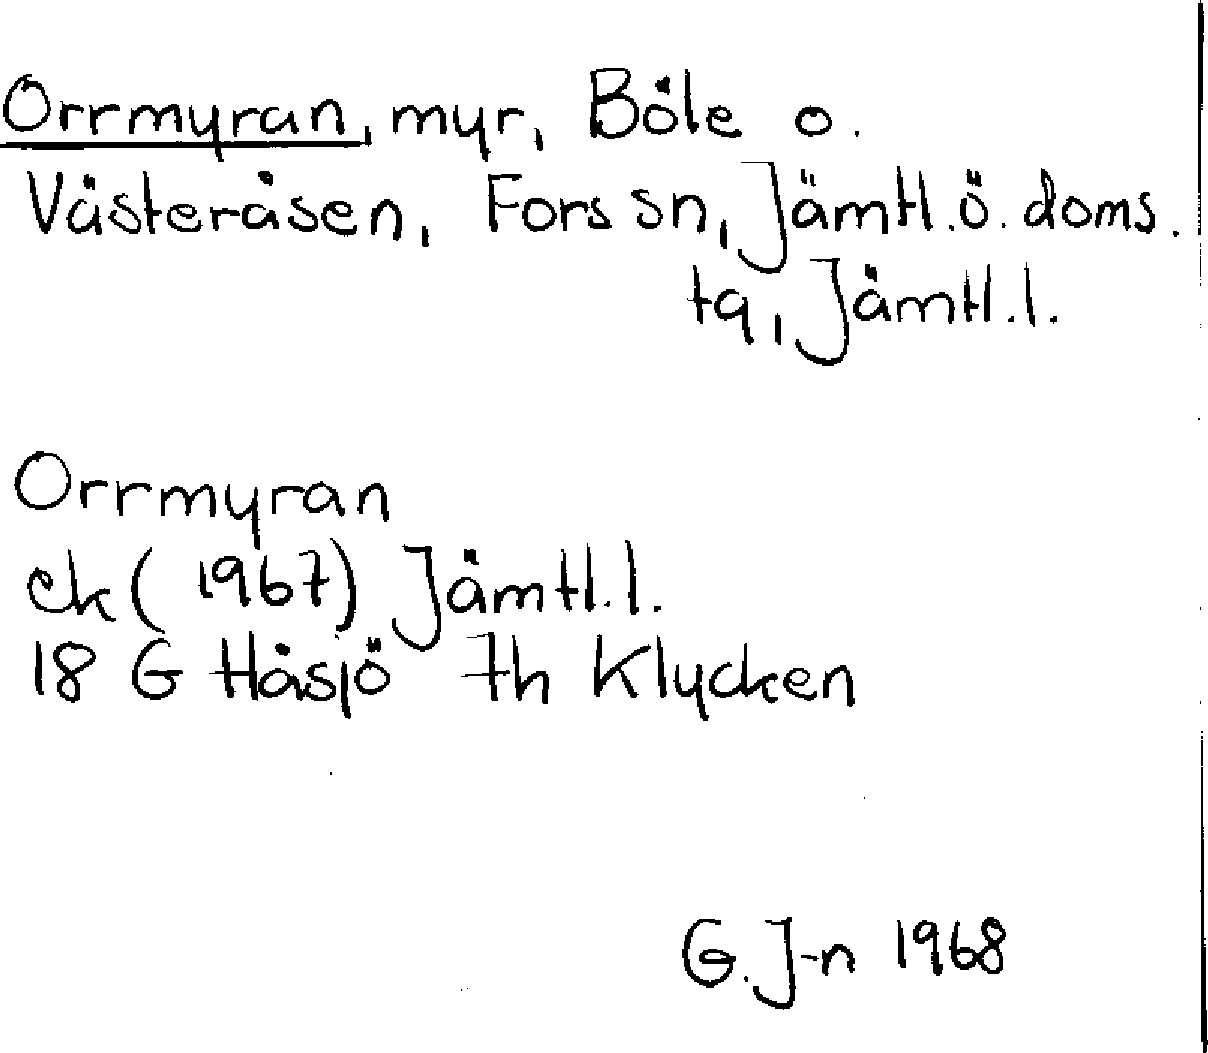 Orrmyran, myr, Böle o.
Västeråsen, Fors sn, Jämtl.ö. doms.
tg, Jämtl.l.
Orrmyran
ek (1967) Jämtl.l.
18 G Håsjö 7h Klycken
G. J-n 1968